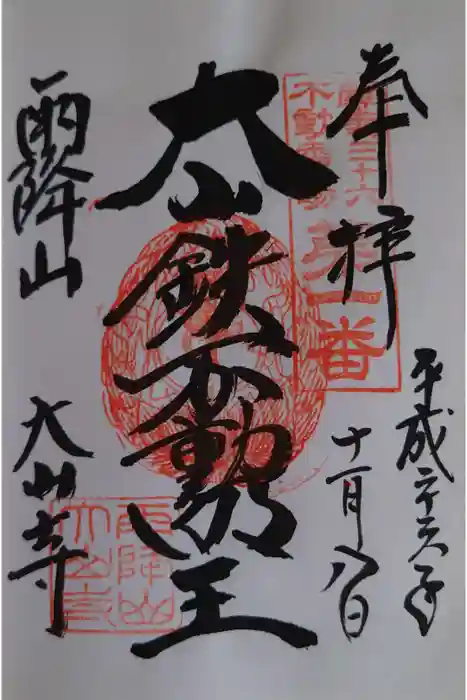 奉拝
平成二十六年
十一月八日
関東三十六
不動霊場
第一番
大山鉄不動明王
雨降山
大山寺
雨降山
大山寺